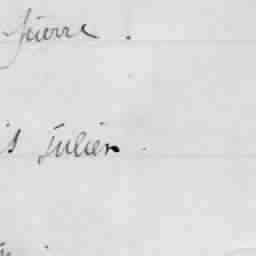 Pierre.
is Julien.